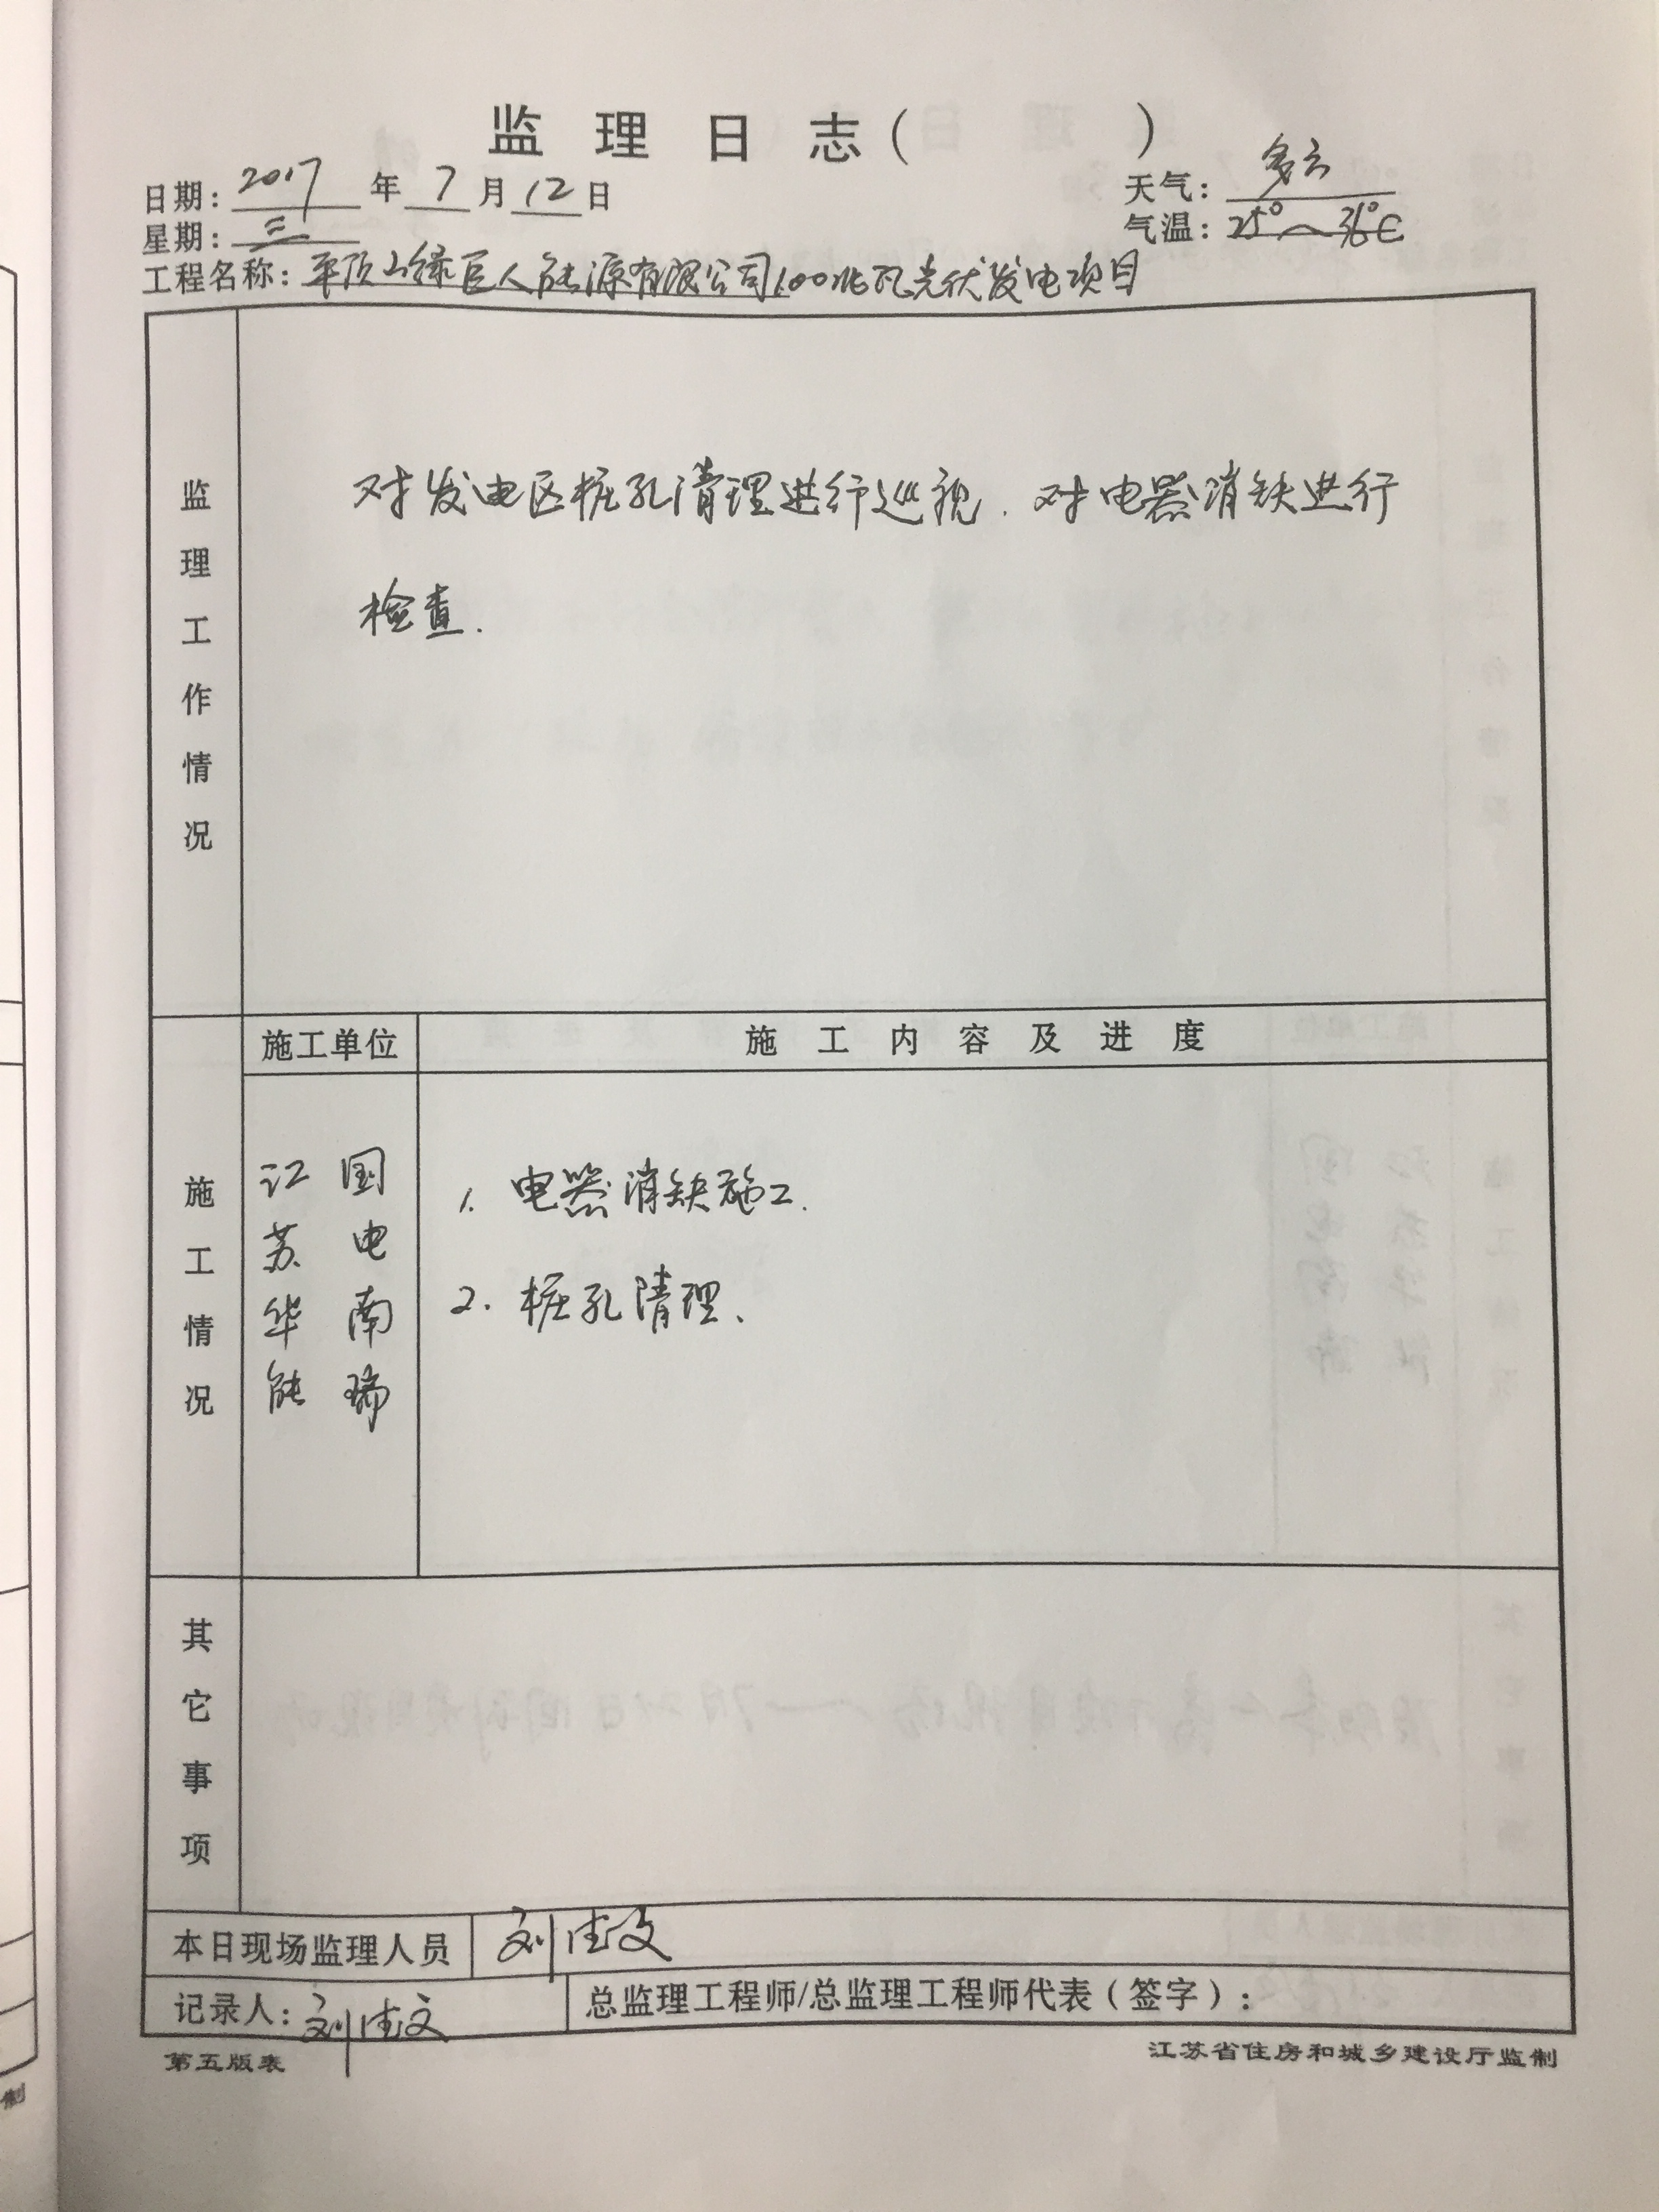 监理日志（ ）
日期：2017年7月12日 天气：多云
星期：三 气温：25°～36℃
工程名称：平顶山绿巨人能源有限公司100兆瓦光伏发电项目
监理工作情况
对发电区桩孔清理进行巡视．对电器消缺进行
检查．
施工单位 施工内容及进度
施工情况
国电南瑞
江苏华能
1. 电器消缺施工．
2. 桩孔清理、
其它事项
本日现场监理人员 刘
记录人：刘 总监理工程师/总监理工程师代表（签字）：
第五版表 江苏省住房和城乡建设厅监制
制